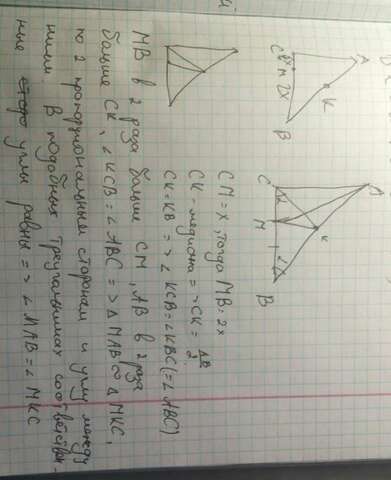 A
C
M
2x
K
B
A
C
M
K
B
CM = x, тогда MB = 2x
CK - медиана => CK = AB/2
CK = KB => ∠KCB = ∠KBC (= ∠ABC)
MB в 2 раза больше CM, AB в 2 раза
больше CK, ∠KCB = ∠ABC => △MAB ∾ △MKC,
по 2 пропорциональным сторонам и углу между
ними. В подобных треугольниках соответствен-
ные углы равны => ∠MAB = ∠MKC